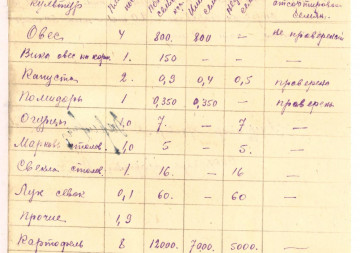 культур
Овес 4 800. 800 — не проверен
Вика овес на корм 1. 150 — —
Капуста 2. 0,9 0,4 0,5 проверена
Помидоры 1 0,350 0,350 — проверен
Огурцы 7. — 7 —
Морковь столов. 1,0 5 — 5 —
Свекла столов. 1. 16 — 16 —
Лук севок 0,1 60. — 60 —
Прочие 1,9
Картофель 8 12000. 7000. 5000. —